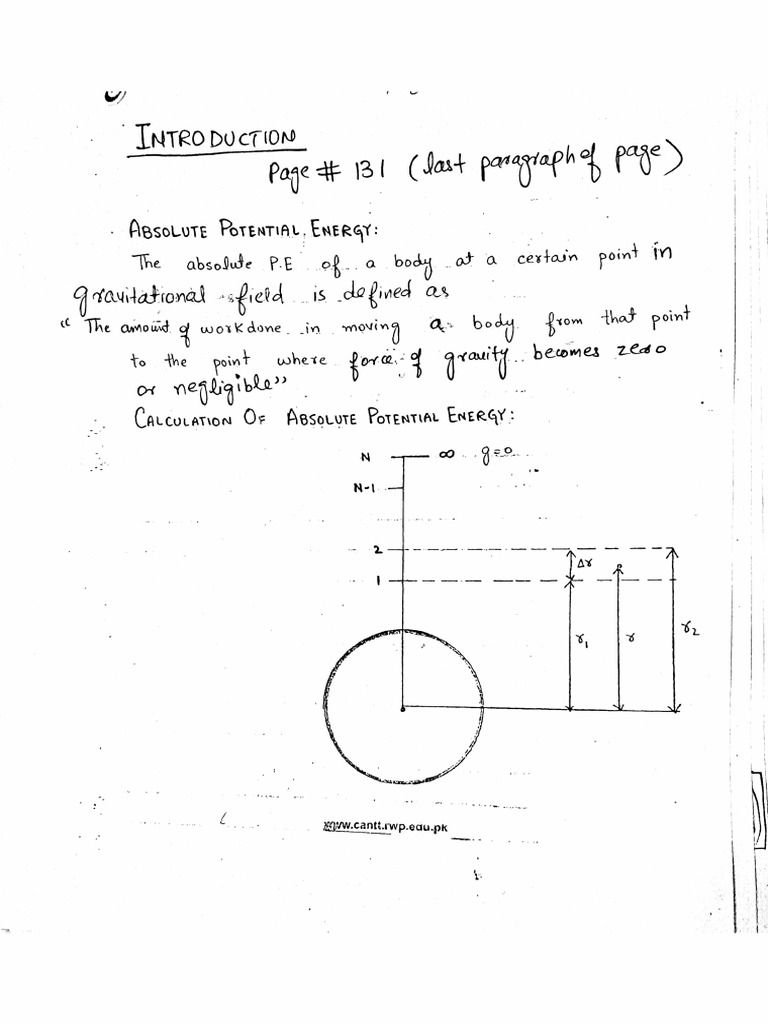 INTRODUCTION
Page # 131 (last paragraph of page)
ABSOLUTE POTENTIAL ENERGY:
The absolute P.E of a body at a certain point in
gravitational field is defined as
“ The amount of workdone in moving a body from that point
to the point where force of gravity becomes zero
or negligible”
CALCULATION OF ABSOLUTE POTENTIAL ENERGY:
N ∞ g=0
N-1
2
Δr
1
r₁ r r₂
www.cantt.rwp.edu.pk